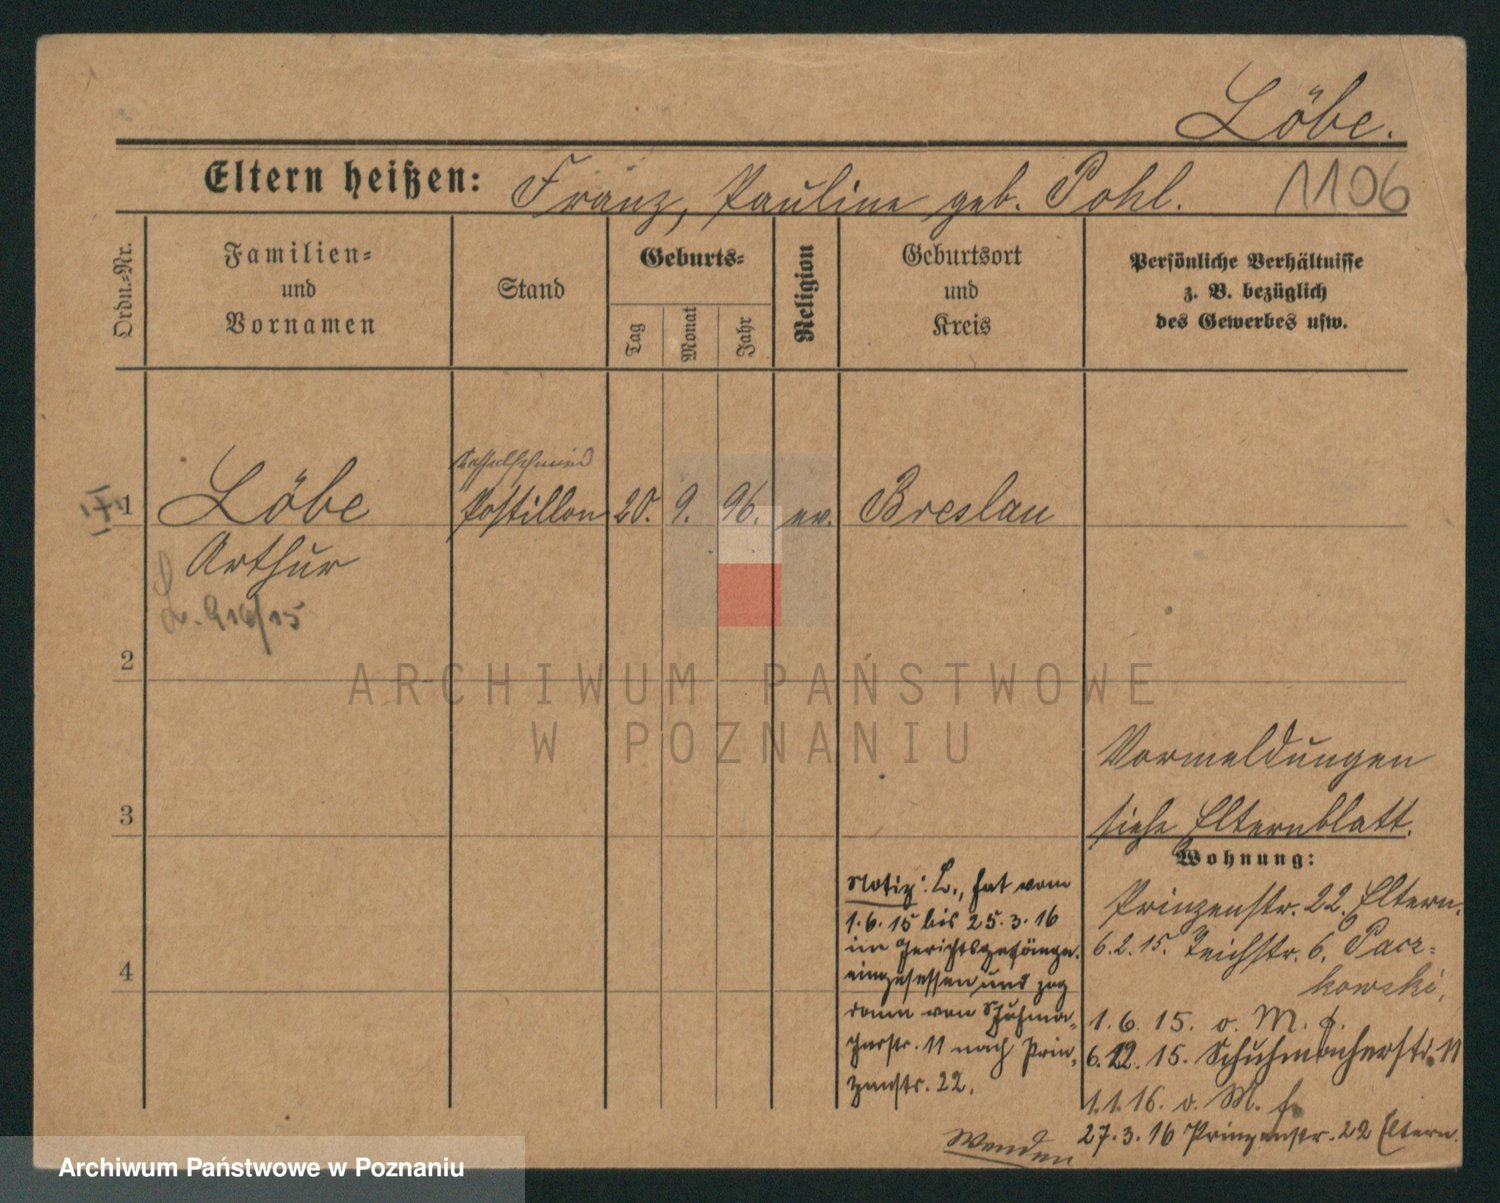 Löbe.
Eltern heißen: Franz, Pauline geb. Pohl. 1106
Ordn.-Nr.
Familien-
und
Vornamen
Stand
Geburts-
Tag
Monat
Jahr
Religion
Geburtsort
und
Kreis
Persönliche Verhältnisse
z. B. bezüglich
des Gewerbes usw.
Kesselschmied
1 Löbe Postillon 20. 9. 96. ev. Breslau
Arthur
L. 916/15
2
ARCHIWUM PAŃSTWOWE
W POZNANIU
3
4
Vormeldungen
siehe Elternblatt.
Wohnung:
Prinzenstr. 22. Eltern.
6.2.15. Teichstr. 6, Pacz-
kowski,
1.6.15. o. M. f.
6.12.15. Schuhmacherstr. 11
1.1.16. o. M. f.
27.3.16 Prinzenstr. 22 Eltern.
Notiz: L., hat vom
1.6.15 bis 25.3.16
im Gerichtsgefängn.
eingesessen und zog
dann von Schuhma-
cherstr. 11 nach Prin-
zenstr. 22.
Wenden
Archiwum Państwowe w Poznaniu